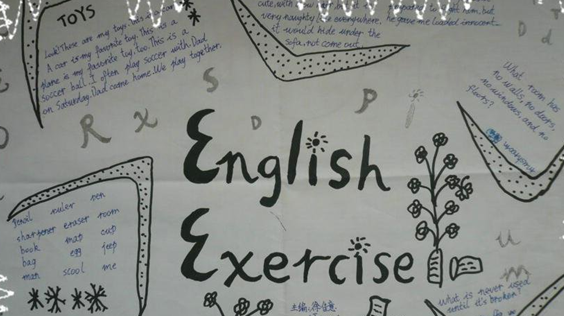 TOYS
Look! These are my toys. This
A car is my favorite toy. This is a
plane is my favorite toy, too. This is a
soccer ball. I often play soccer with Dad
on Saturday. Dad came home. We play together.
very naughty. everywhere, he gave me looked innocent...
it would hide under the
sofa, not come out
What room has
no walls, no doors,
no windows, and no
floors?
R X S D P
English
Exercise
pencil ruler pen
sharpener eraser room
book map cup
bag egg jeep
man scool me
u
m
What is never used
until it's broken?
主编: